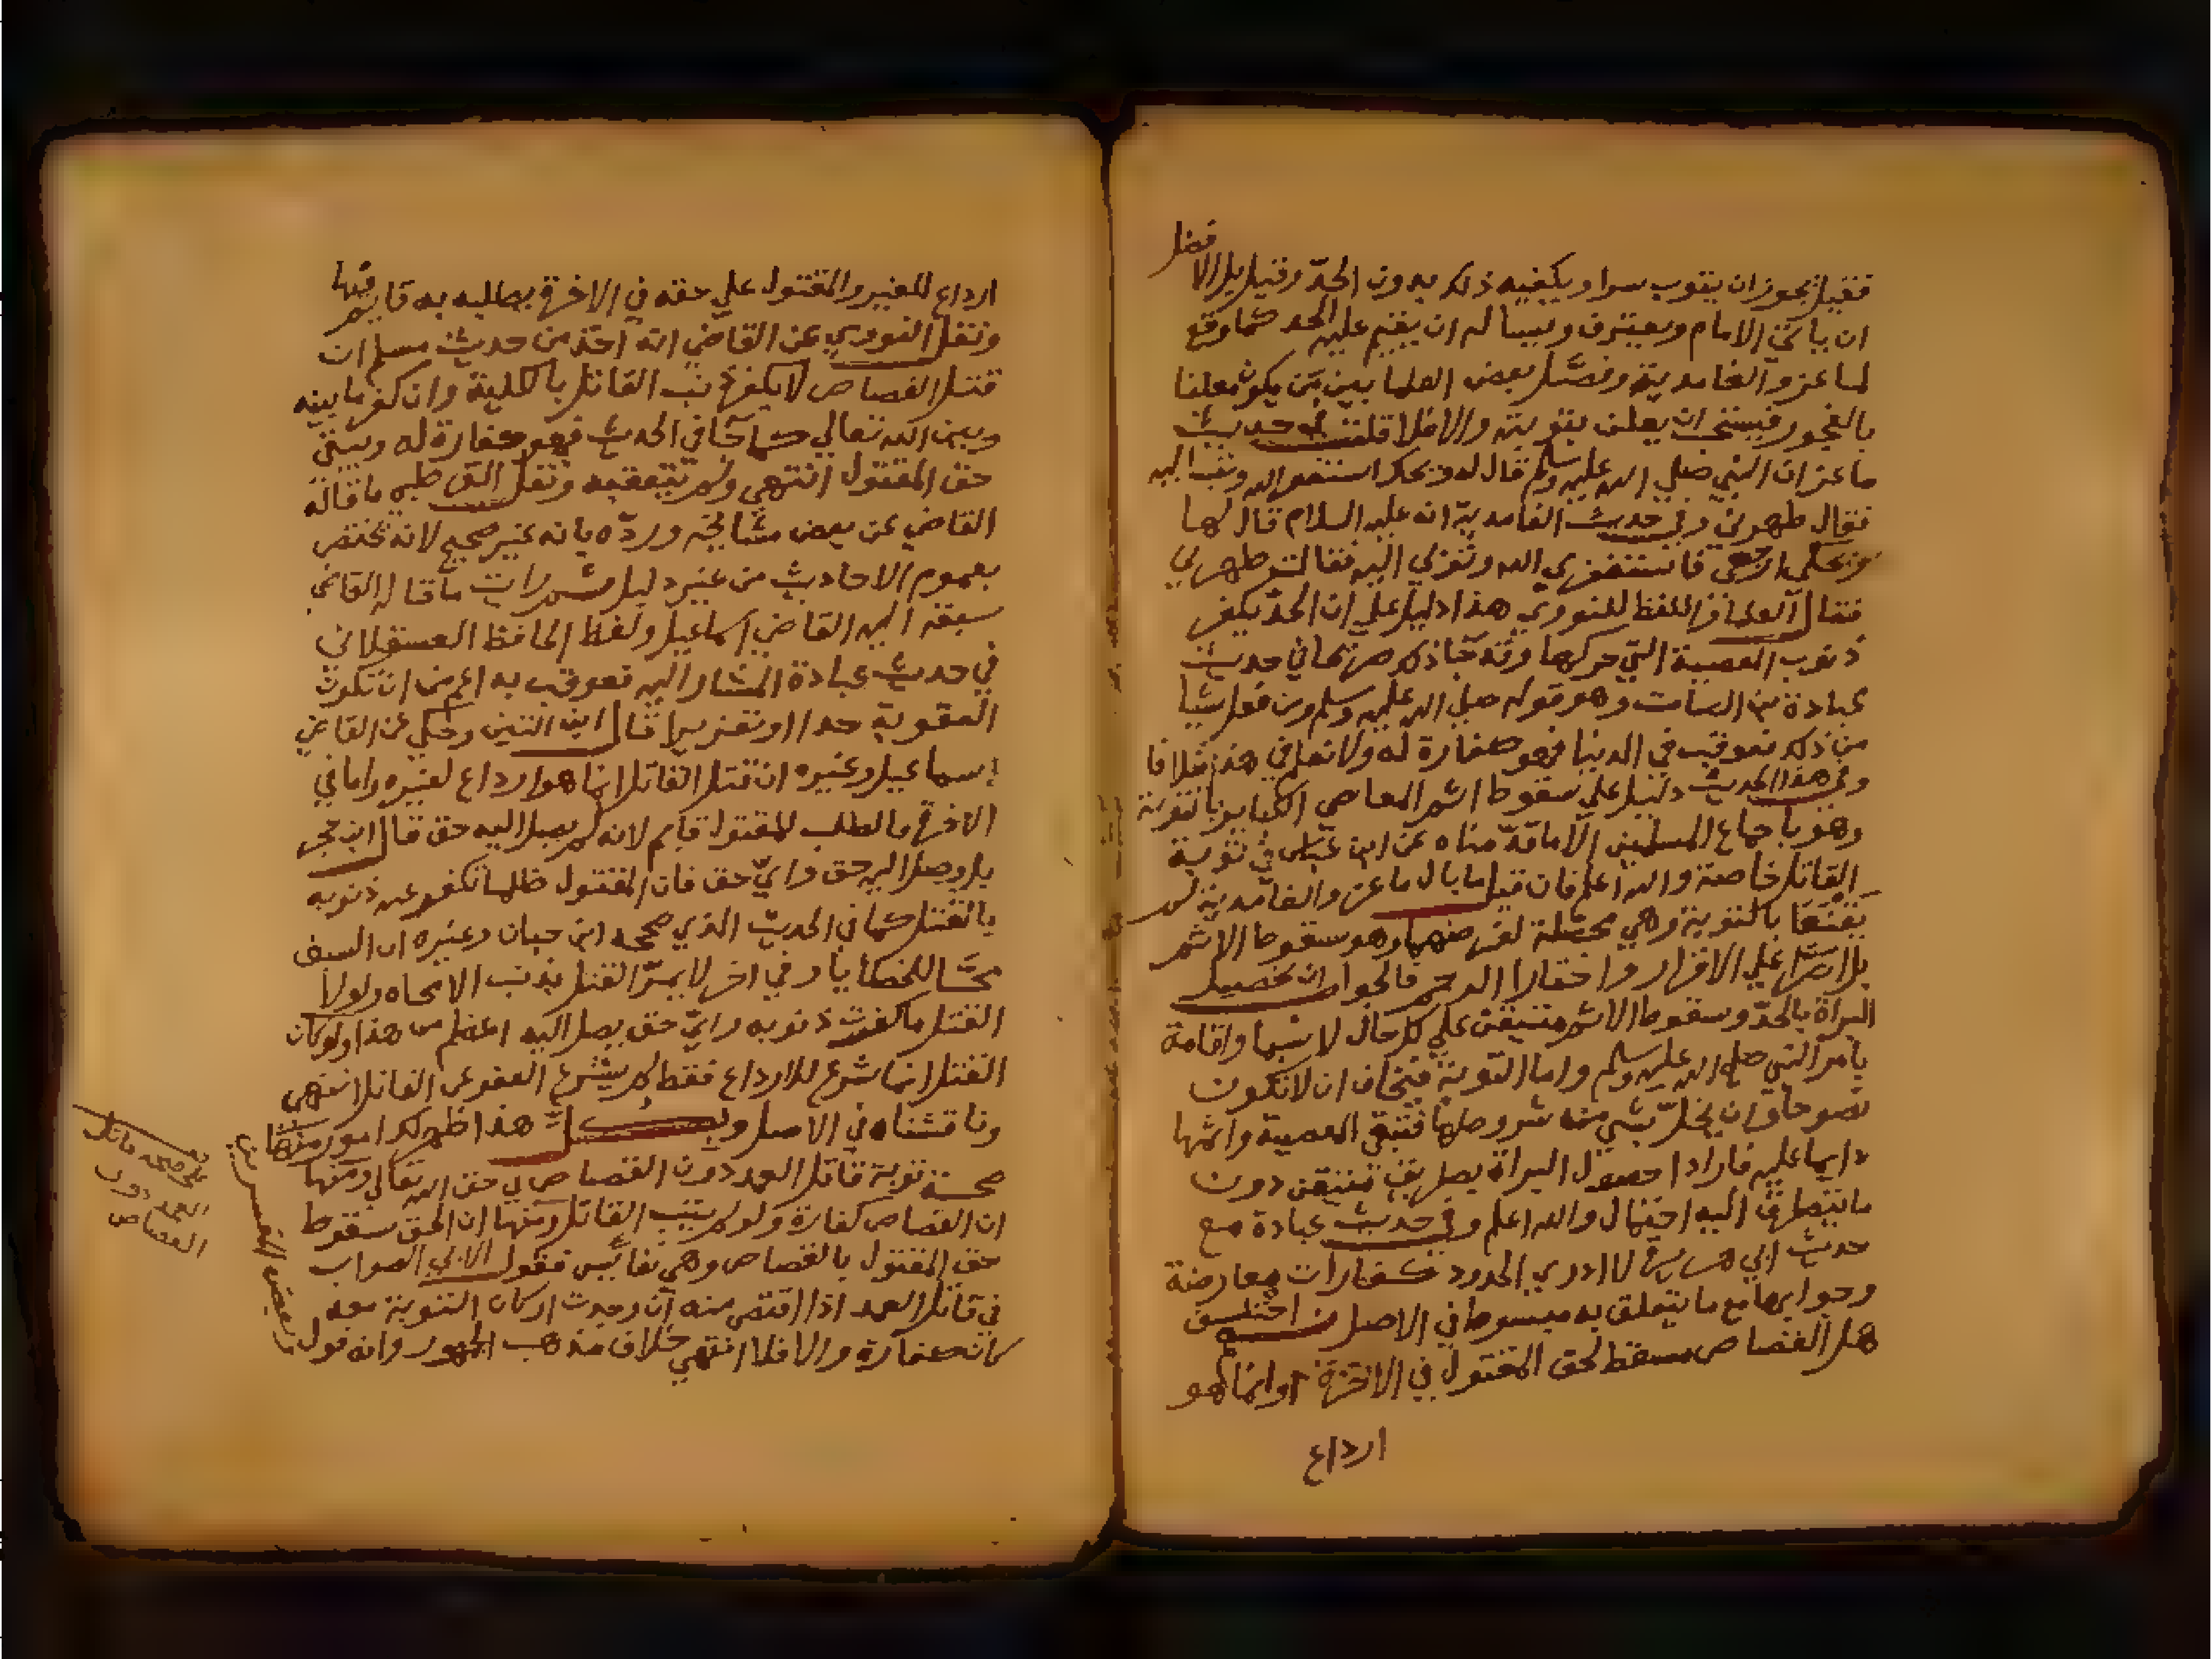 فقيل يجوز ان يتوب سرا ويكفيه ذلك بدون الحدّ وقيل بل الافضل
ان ياتي الامام ويعترف ويساله ان يقيم عليه الحد كما وقع
لماعز والغامدية وفصّل بعض العلما بين من يكون معلنا
بالفجور فيستحب ان يعلن بتوبته والا فلا قلت في حديث
ماعز ان النبي صلي الله عليه وسلم قال له ويحك استغفر الله وتب اليه
فقال طهرني وفي حديث الغامدية انه عليه السلام قال لها
ويحكي ارجعي فاستغفري الله وتوبي اليه فقالت طهرني
فقال العلما واللفظ للنووي هذا دليل علي ان الحدّ يكفر
ذنوب المعصية التي حد لها وقد جا ذكر صريحا في حديث
عبادة بن الصامت وهو قوله صلي الله عليه وسلم ومن فعل شيا
من ذلك فعوقب في الدنيا فهو كفارة له ولا نعلم في هذا خلافا
وفي هذا الحديث دليل علي سقوط اثم المعاصي الكباير بالتوبة
وهو باجماع المسلمين الا ما قدّمناه عن ابن عباس في توبة
القاتل خاصة والله اعلم فان قيل ما بال ماعز والغامدية لم
يقنعا بالتوبة وهي محصّلة لغرضهما وهو سقوط الاثم
بل اصرّا علي الاقرار واختارا الرجم فالجواب ان تحصيل
البراة بالحدّ وسقوط الاثم متيقن علي كل حال لا سيما واقامة
بامر النبي صلي الله عليه وسلم واما التوبة فيخاف ان لا تكون
نصوحا وان يخلّ بشي من شروطها فتبقي المعصية واثمها
دايما عليه فارادا حصول البراة بطريق متيقن دون
ما يتطرق اليه احتمال والله اعلم وفي حديث عبادة مع
حديث ابي هريرة لا ادري الحدود كفارات معارضة
وجوابها مع ما يتعلق به مبسوط في الاصل اختلف
هل القصاص مسقط لحق المقتول في الاخرة اوانما هو
ارداع
ارداع للغير والمقتول علي حقه في الاخرة يطالبه به قايم فيها
ونقل النووي عن القاضي انه اخذ من حديث مسلم ان
قتل القصاص لا يكفر ذنب القاتل بالكلية وان كفر ما بينه
وبين الله تعالي كما جا في الحديث فهو كفارة له ويبقي
حق المقتول انتهي ولم يتعقبه ونقل القرطبي ما قاله
القاضي عن بعض مشايخه وردّه بانه غير صحيح لانه تخصيص
بعموم الاحاديث من غير دليل ثم رايت ما قاله القاضي
سبقه اليه القاضي اسماعيل ولفظ الحافظ العسقلاني
في حديث عبادة المشار اليه فعوقب به اعم من ان تكون
العقوبة حدا او تعزيرا قال ابن التين وحكي عن القاضي
إسماعيل وغيره ان قتل القاتل انما هو ارداع لغيره واما في
الاخرة فالطلب للمقتول قايم لانه لم يصل اليه حق قال ابن حجر
بل وصل اليه حق وايّ حق فان المقتول ظلما تكفر عنه ذنوبه
بالقتل كما في الحديث الذي صححه ابن حبان وغيره ان السيف
محّا للخطايا وفي اخر لا يمرّ القتل بذنب الا محاه ولولا
القتل ما كفرت ذنوبه وايّ حق يصل اليه اعظم من هذا ولو كان
القتل انما شرع للارداع فقط لم يشرع العفو عن القاتل انتهي
وناقشناه في الاصل هذا ظهر لك امور منها
صحة توبة قاتل العمد دون القصاص في حق الله تعالي ومنها
ان القصاص كفارة ولو لم يتب القاتل ومنها ان الحق سقوط
حق المقتول بالقصاص وهي نفايس فقول الابي الصواب
في قاتل العمد اذا اقتص منه ان وجدت اركان التوبة معه
كانت كفارة والا فلا انتهي خلاف مذهب الجمهور وانه قول
بعض المفسرين
صحة
العمد دون
القصاص